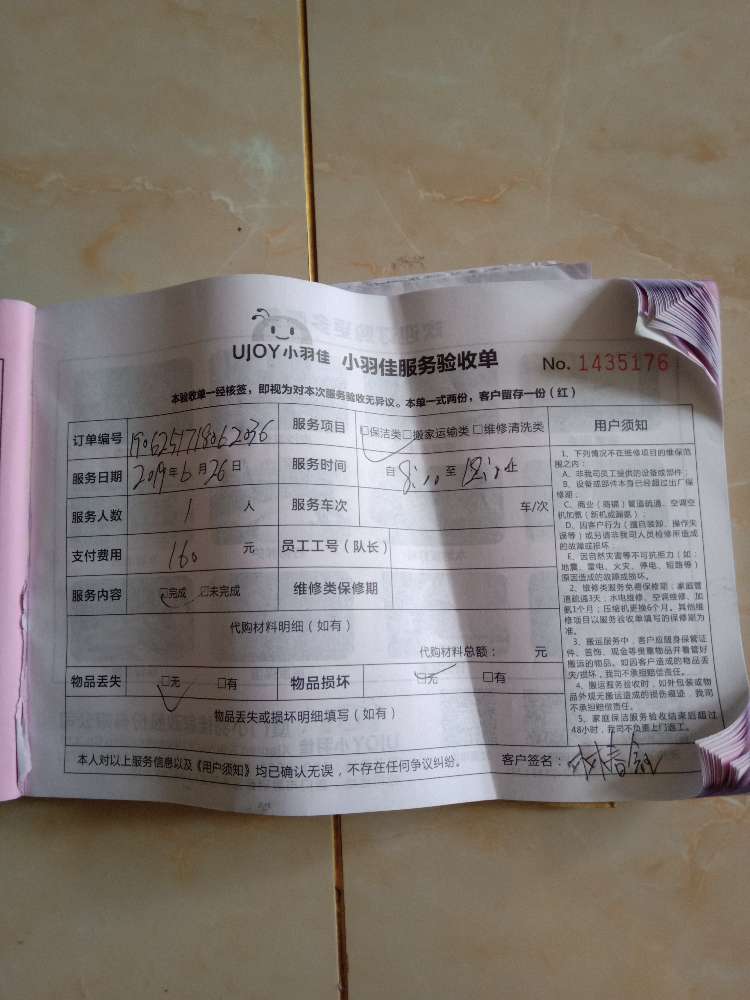 UJOY小羽佳 小羽佳服务验收单 No. 1435176
本验收单一经核签，即视为对本次服务验收无异议。本单一式两份，客户留存一份（红）
订单编号 1906251718062036 服务项目 □保洁类□搬家运输类 □维修清洗类
服务日期 2019年6月26日 服务时间 自 8:00 至 12:00 止
服务人数 1 人 服务车次 车/次
支付费用 160 元 员工工号（队长）
服务内容 □完成 □未完成 维修类保修期
代购材料明细（如有）
代购材料总额： 元
物品丢失 □无 □有 物品损坏 □无 □有
物品丢失或损坏明细填写（如有）
本人对以上服务信息以及《用户须知》均已确认无误，不存在任何争议纠纷。 客户签名：
用户须知
1、下列情况不在维修项目的维保范
围之内：
A、非我司员工提供的设备或部件；
B、设备或部件本身已经超过出厂保
修期；
C、商业（商铺）管道疏通、空调空
机加氨（新机或漏氨）；
D、因客户行为（擅自装卸、操作失
误等）或另请非我司人员检修所造成
的故障或损坏
E、因自然灾害等不可抗拒力（如：
地震、雷电、火灾、停电、短路等）
原因造成的故障或损坏。
2、维修类服务免费保修期：家庭管
道疏通3天，水电维修、空调维修、加
氨1个月；压缩机更换6个月。其他维
修项目以服务验收单填写的保修期为
准。
3、搬运服务中，客户应随身保管证
件、首饰、现金等贵重物品并看管好
搬运的物品。如因客户造成的物品丢
失/损坏，我司不承担赔偿责任。
4、搬运服务验收时，如外包装或物
品外观无搬运造成的损伤痕迹，我司
不承担赔偿责任。
5、家庭保洁服务验收结束后超过
48小时，我司不负责上门返工。